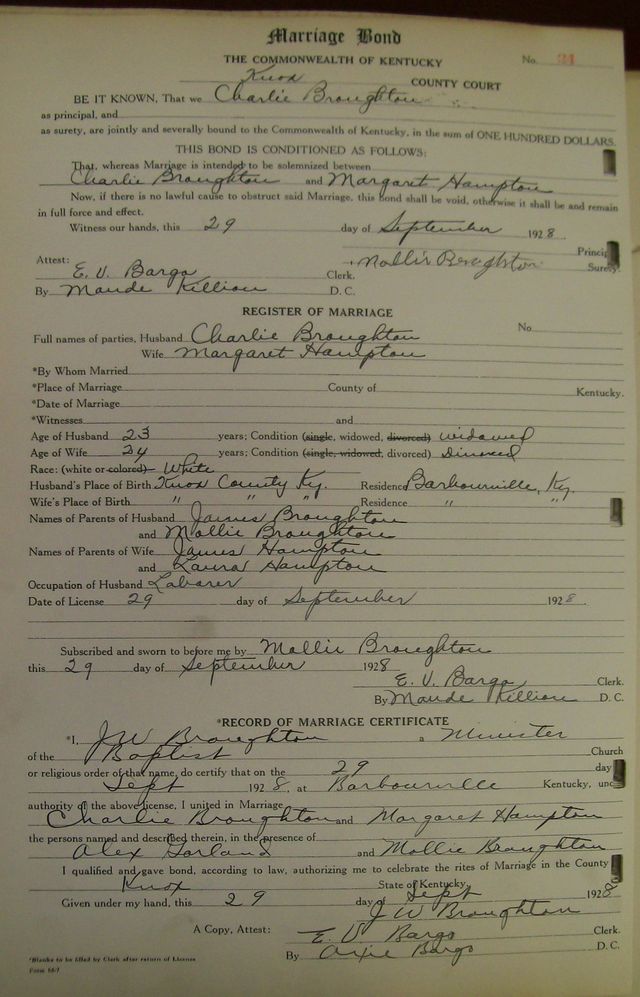 Marriage Bond
THE COMMONWEALTH OF KENTUCKY No. 31
Knox COUNTY COURT
BE IT KNOWN, That we Charlie Broughton
as principal, and
as surety, are jointly and severally bound to the Commonwealth of Kentucky, in the sum of ONE HUNDRED DOLLARS.
THIS BOND IS CONDITIONED AS FOLLOWS:
That, whereas Marriage is intended to be solemnized between
Charlie Broughton and Margaret Hampton
Now, if there is no lawful cause to obstruct said Marriage, this Bond shall be void, otherwise it shall be and remain
in full force and effect.
Witness our hands, this 29 day of September 1928
Princip
Attest: Mollie Broughton Surety.
E. V. Bargo Clerk.
By Maude Killion D. C.
REGISTER OF MARRIAGE
Full names of parties, Husband Charlie Broughton No.
Wife Margaret Hampton
*By Whom Married
*Place of Marriage County of Kentucky.
*Date of Marriage
*Witnesses and
Age of Husband 23 years; Condition (single, widowed, divorced) widowed
Age of Wife 24 years; Condition (single, widowed, divorced) Divorced
Race: (white or colored) White
Husband's Place of Birth Knox County Ky. Residence Barbourville, Ky.
Wife's Place of Birth " " " Residence " "
Names of Parents of Husband James Broughton
and Mollie Broughton
Names of Parents of Wife James Hampton
and Laura Hampton
Occupation of Husband Laborer
Date of License 29 day of September 1928
Subscribed and sworn to before me by Mollie Broughton
this 29 day of September 1928
E. V. Bargo Clerk.
By Maude Killion D. C.
*RECORD OF MARRIAGE CERTIFICATE
*I, J W Broughton a Minister
of the Baptist Church
or religious order of that name, do certify that on the 29 day
Sept 1928, at Barbourville Kentucky, und
authority of the above license, I united in Marriage
Charlie Broughton and Margaret Hampton
the persons named and described therein, in the presence of
Alex Garland and Mollie Broughton
I qualified and gave bond, according to law, authorizing me to celebrate the rites of Marriage in the County
Knox State of Kentucky
Given under my hand, this 29 day of Sept 1928
J W Broughton
A Copy, Attest: E. V. Bargo Clerk.
By Oxie Bargo D. C.
*Blanks to be filled by Clerk after return of License